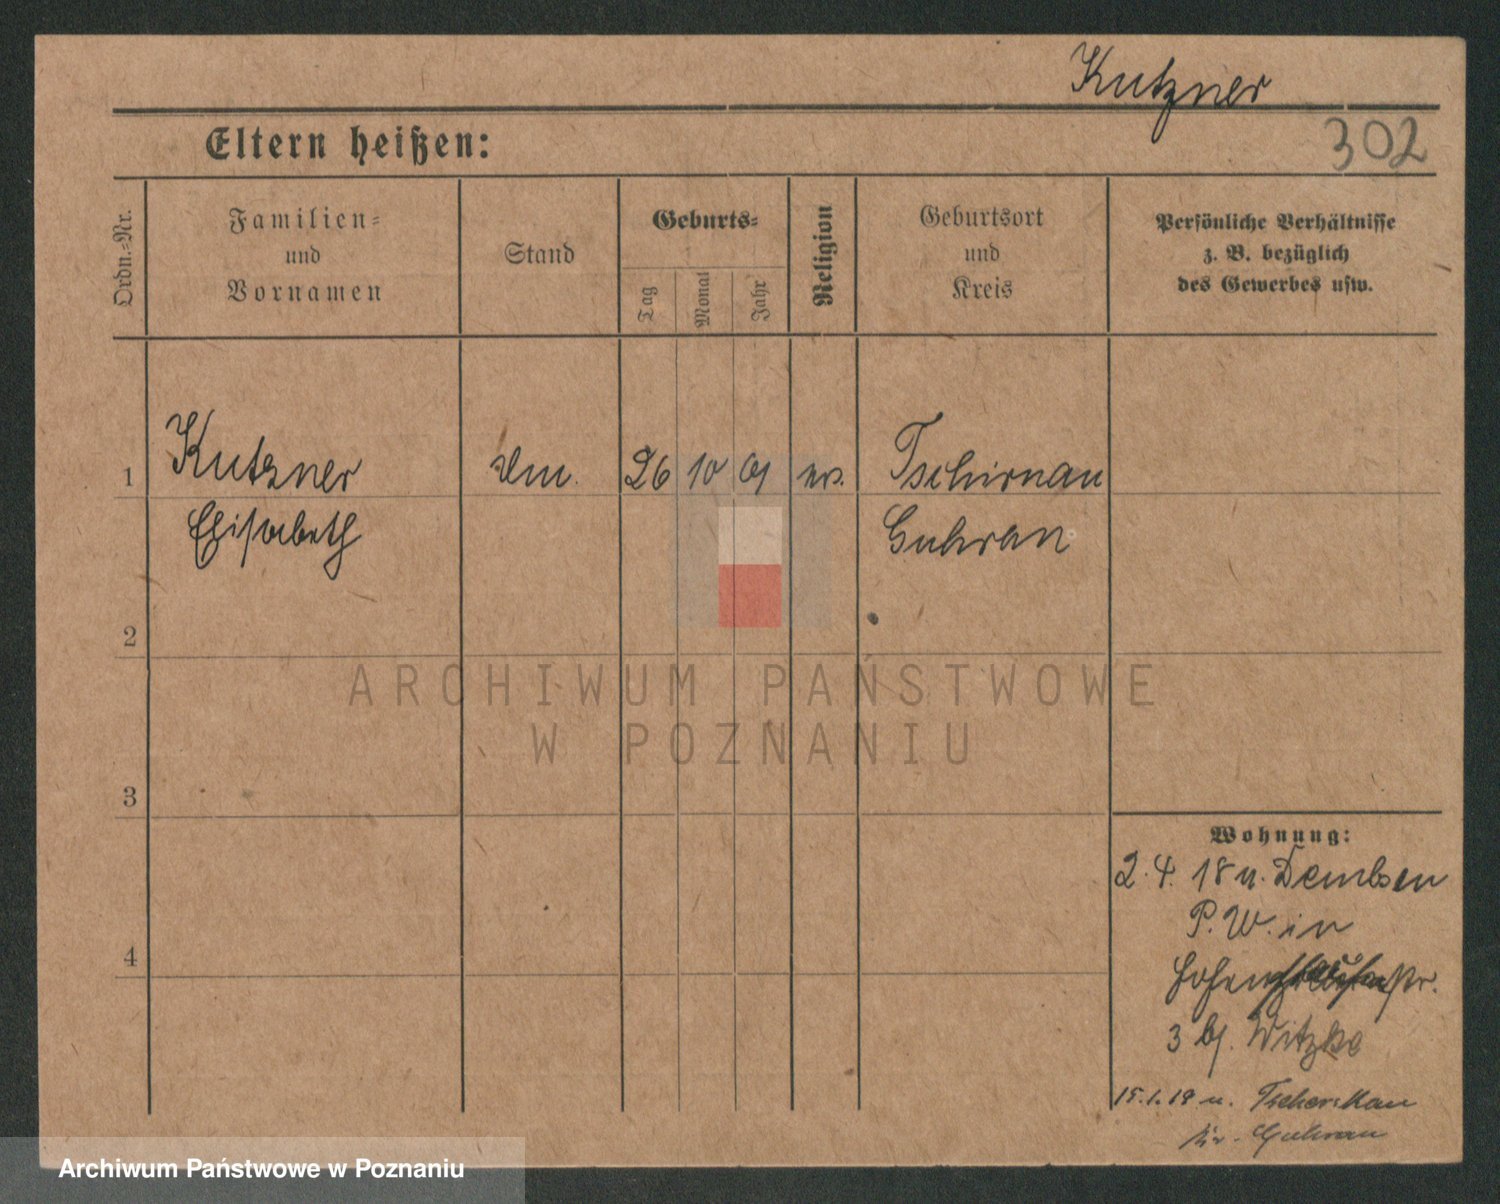 Kutzner
Eltern heißen:
302
Ordn.-Nr.
Familien-
und
Vornamen
Stand
Geburts-
Tag
Monat
Jahr
Religion
Geburtsort
und
Kreis
Persönliche Verhältnisse
z. B. bezüglich
des Gewerbes usw.
1
Kutzner
Elisabeth
26
10
01
ev.
Tschirnau
Guhrau
2
ARCHIWUM PAŃSTWOWE
W POZNANIU
3
Wohnung:
2.4.18 n. Dembsen
P. W. in
3 bj. Witzke
4
15.1.19 n.
Kr. Guhrau
Archiwum Państwowe w Poznaniu